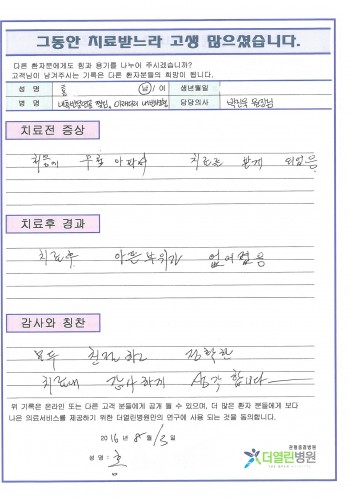 그동안 치료받느라 고생 많으셨습니다.
다른 환자분에게도 힘과 용기를 나누어 주시겠습니까?
고객님이 남겨주시는 기록은 다른 환자분들의 희망이 됩니다.
성 명 홍 남 / 여 생년월일
병 명 담당의사 원장님
치료전 증상
무척 아파서 치료를 받게 되었음
치료후 경과
치료후 아픈부위가 없어졌음
감사와 칭찬
모두 친절하고 정확한
치료에 감사하게 생각합니다
위 기록은 온라인 또는 다른 고객 분들에게 공개 될 수 있으며, 더 많은 환자 분들에게 보다
나은 의료서비스를 제공하기 위한 더열린병원만의 연구에 사용 되는 것을 동의합니다.
2016 년 8 월 13 일
성 명 : 홍
더열린병원